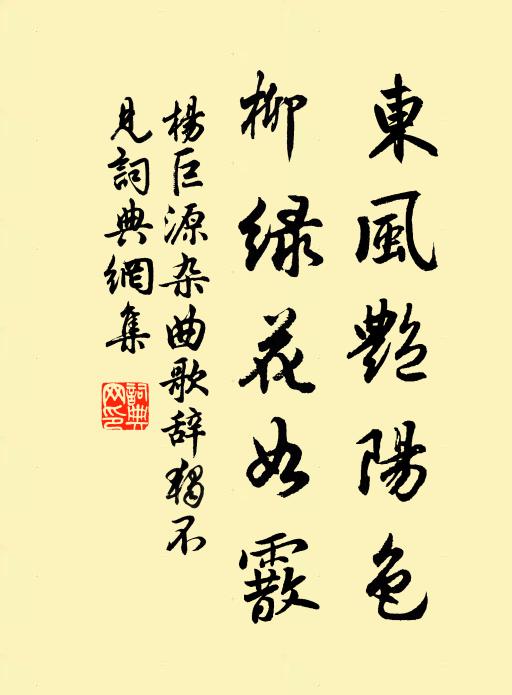 東風艷陽色
柳绿花如霰
楊巨源杂曲歌辞獨不
見詞典網集
詞典
网印